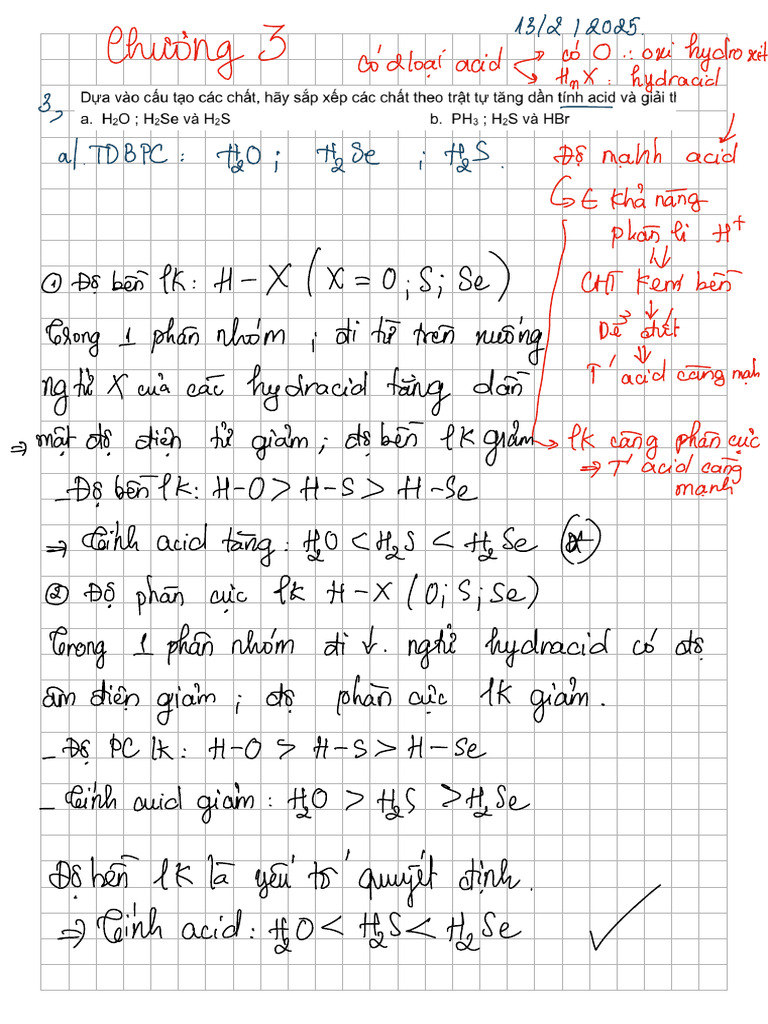 13/2/2025.
Chương 3
có 2 loại acid → có O : oxi hydroxit
→ HnX : hydracid
3, Dựa vào cấu tạo các chất, hãy sắp xếp các chất theo trật tự tăng dần tính acid và giải tl
a. H2O ; H2Se và H2S
b. PH3 ; H2S và HBr
a/. TDBPC : H2O ; H2Se ; H2S.
Độ mạnh acid
↳ E khả năng
phân li H+
CHT kém bền
Dễ đứt
T' acid càng mạnh
① Độ bền lk: H – X (X = O ; S ; Se)
Trong 1 phân nhóm ; đi từ trên xuống
ng tử X của các hydracid tăng dần
⇒ mật độ điện tử giảm ; độ bền lk giảm
→ lk càng phân cực
⇒ T' acid càng
mạnh
– Độ bền lk: H–O > H–S > H–Se
⇒ Tính acid tăng : H2O < H2S < H2Se
② Độ phân cực lk H–X (O ; S ; Se)
Trong 1 phân nhóm đi ↓. ng tử hydracid có độ
âm điện giảm ; độ phân cực lk giảm.
– Độ PC lk: H–O > H–S > H–Se
– Tính acid giảm : H2O > H2S > H2Se
Độ bền lk là yếu tố quyết định.
⇒ Tính acid : H2O < H2S < H2Se